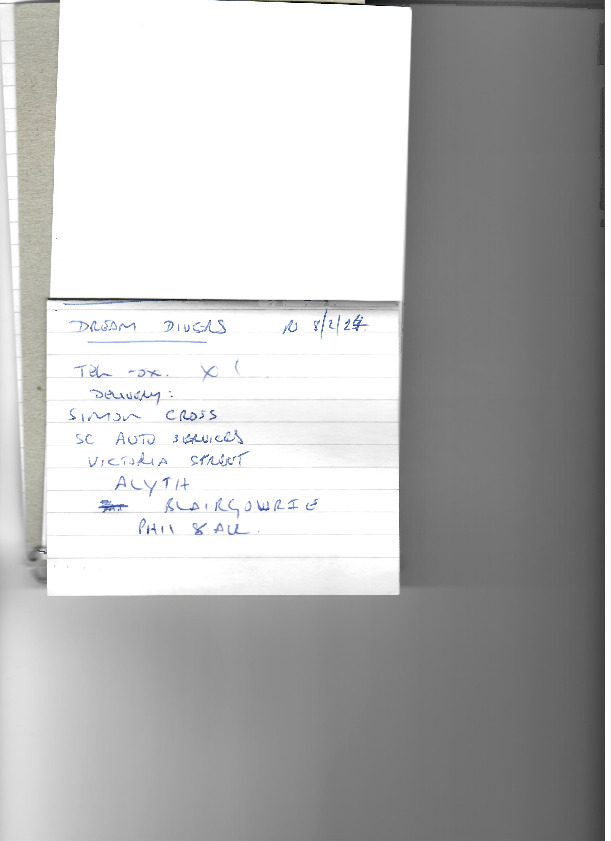 DREAM DIVERS 8/2/24
TEK -OX. X 1
DELIVERY:
SIMON CROSS
SC AUTO SERVICES
VICTORIA STREET
ALYTH
BLAIRGOWRIE
PH11 8AU.